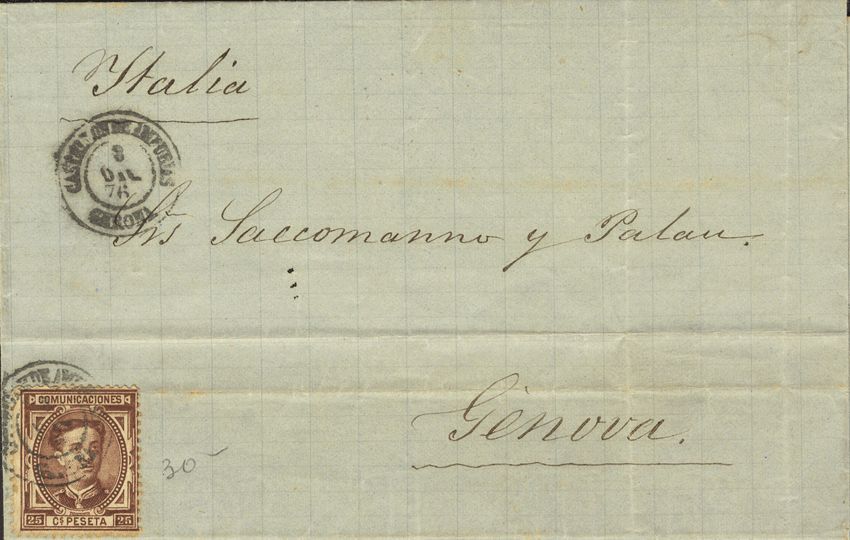 Italia
CASTELLON DE AMPURIAS
8
DIC
76
GERONA
Srs Saccomanno y Palau.
COMUNICACIONES
25 Cs PESETA 25
30-
Génova.